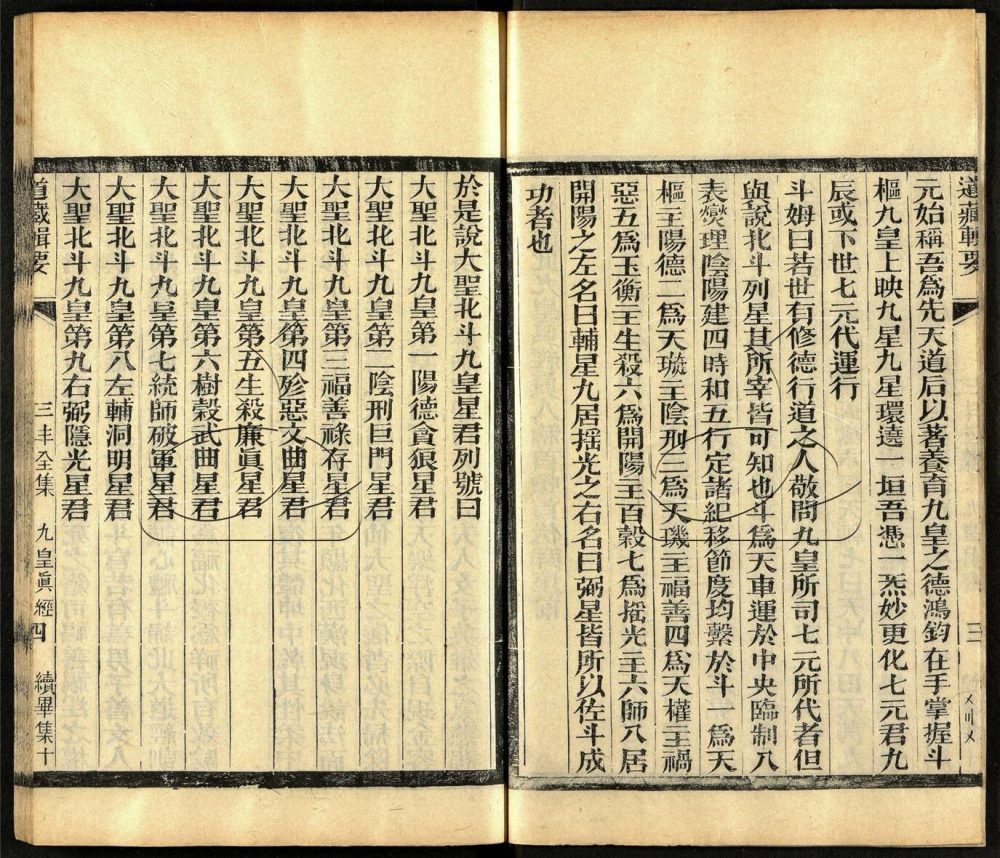 道藏輯要
三
元始稱吾爲先天道后以著養育九皇之德鴻鈞在手掌握斗
樞九皇上映九星九星環遶一垣吾憑一炁妙更化七元君九
辰或下世七元代運行
斗姆曰若世有修德行道之人敬問九皇所司七元所代者但
與說北斗列星其所宰皆可知也斗爲天車運於中央臨制八
表爕理陰陽建四時和五行定諸紀移節度均繫於斗一爲天
樞主陽德二爲天璇主陰刑三爲天璣主福善四爲天權主禍
惡五爲玉衡主生殺六爲開陽主百穀七爲搖光主六師八居
開陽之左名曰輔星九居搖光之右名曰弼星皆所以佐斗成
功者也
於是說大聖北斗九皇星君列號曰
大聖北斗九皇第一陽德貪狼星君
大聖北斗九皇第二陰刑巨門星君
大聖北斗九皇第三福善祿存星君
大聖北斗九皇第四殄惡文曲星君
大聖北斗九皇第五生殺廉眞星君
大聖北斗九皇第六樹穀武曲星君
大聖北斗九皇第七統師破軍星君
大聖北斗九皇第八左輔洞明星君
大聖北斗九皇第九右弼隱光星君
道藏輯要
三丰全集 九皇眞經 四 續畢集十